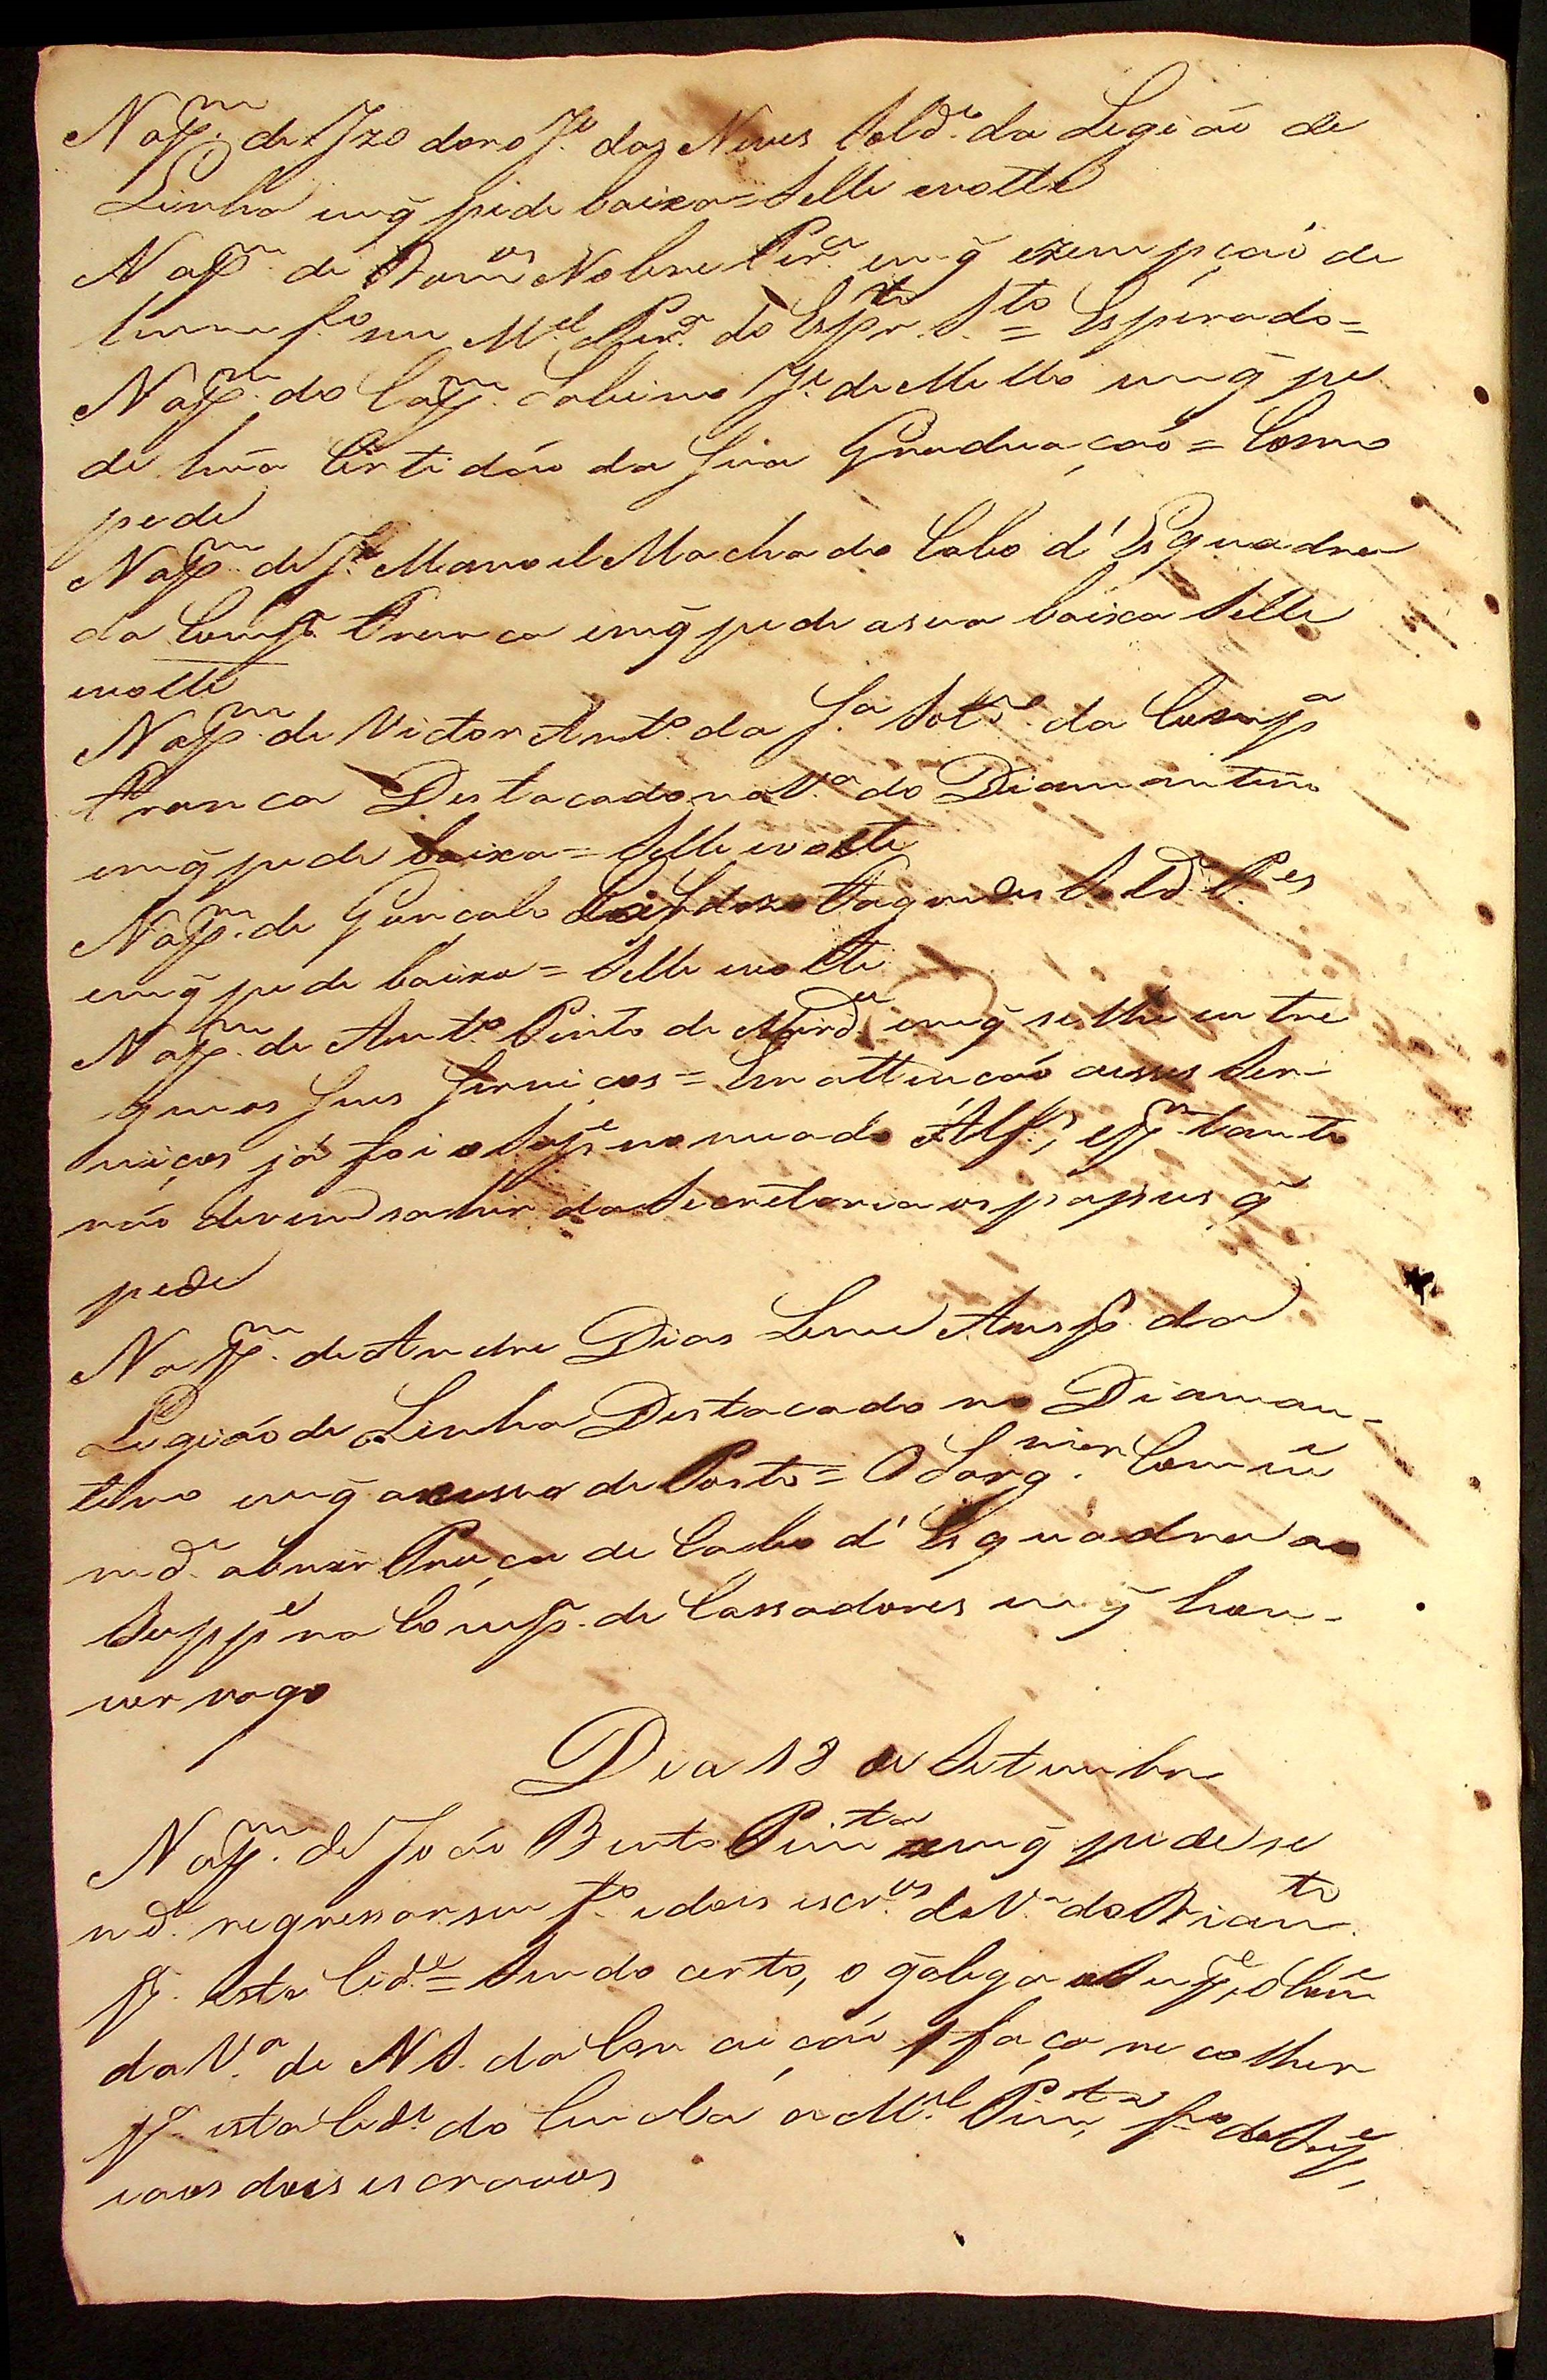 Na pm. de Izodoro Je. das Neves Sold.o da Legiaõ de
Linha em q̃ pede baixa = Selle e volte
Na pm. de Dom.os Nobre Per.a em q̃ ezempçaõ de
hum f.o seu M.el Per.a do Espr. S.to = Esperado =
Na pm. do Cap.m Sabino Je. de Mello em q̃ pe
de huã Certidaõ da sua Graduaçaõ = Como
pede
Na pm. de Je. Manoel Machado Cabo d'Esquadra
da Comp.a Franca em q̃ pede a sua baixa Selle
e volte
Na pm. de Victor Ant.o da S.a Sold.o da Comp.a
Franca Destacado na V.a do Diamantino
em q̃ pede baixa = Selle e volte
Na pm. de Goncalo Cardozo Fagundes Sold. P.es
em q̃ pede baixa = Selle e volte
Na pm. de Ant.o Pinto de Mird.a em q̃ se lhe entre
guem os seus serviços = Em attencaõ a esses Ser-
viços já foi o Sup.e nomeado Alf.es, e p.r tanto
naõ devem sahir da Secretaria os papeis q̃
pede
Na pm. de Andre Dias Leme Ansp. da
Legiaõ de Linha Destacado no Diaman-
tino em q̃ acesso de Posto = O Sarg. mor Com.e
m.de abrir Praça de Cabo d'Esquadra ao
Supp.e na Comp. de Cassadores em q̃ hou-
ver vago
Dia 13 de Setembro
Na pm. de Joaõ Bento Pim.ta em q̃ pede se
m.de regressar seu f.o e dois escr.os da V.a do Diam.to
p.a esta Cid.e = Sendo certo, o q̃ alega o Sup.e, o Com.e
da V.a de N S. da Conceiçaõ faça recolher
p.a esta Cid.e do Cuiabá a M.el Pim.ta f.o do Sup.e,
e aos dois escravos